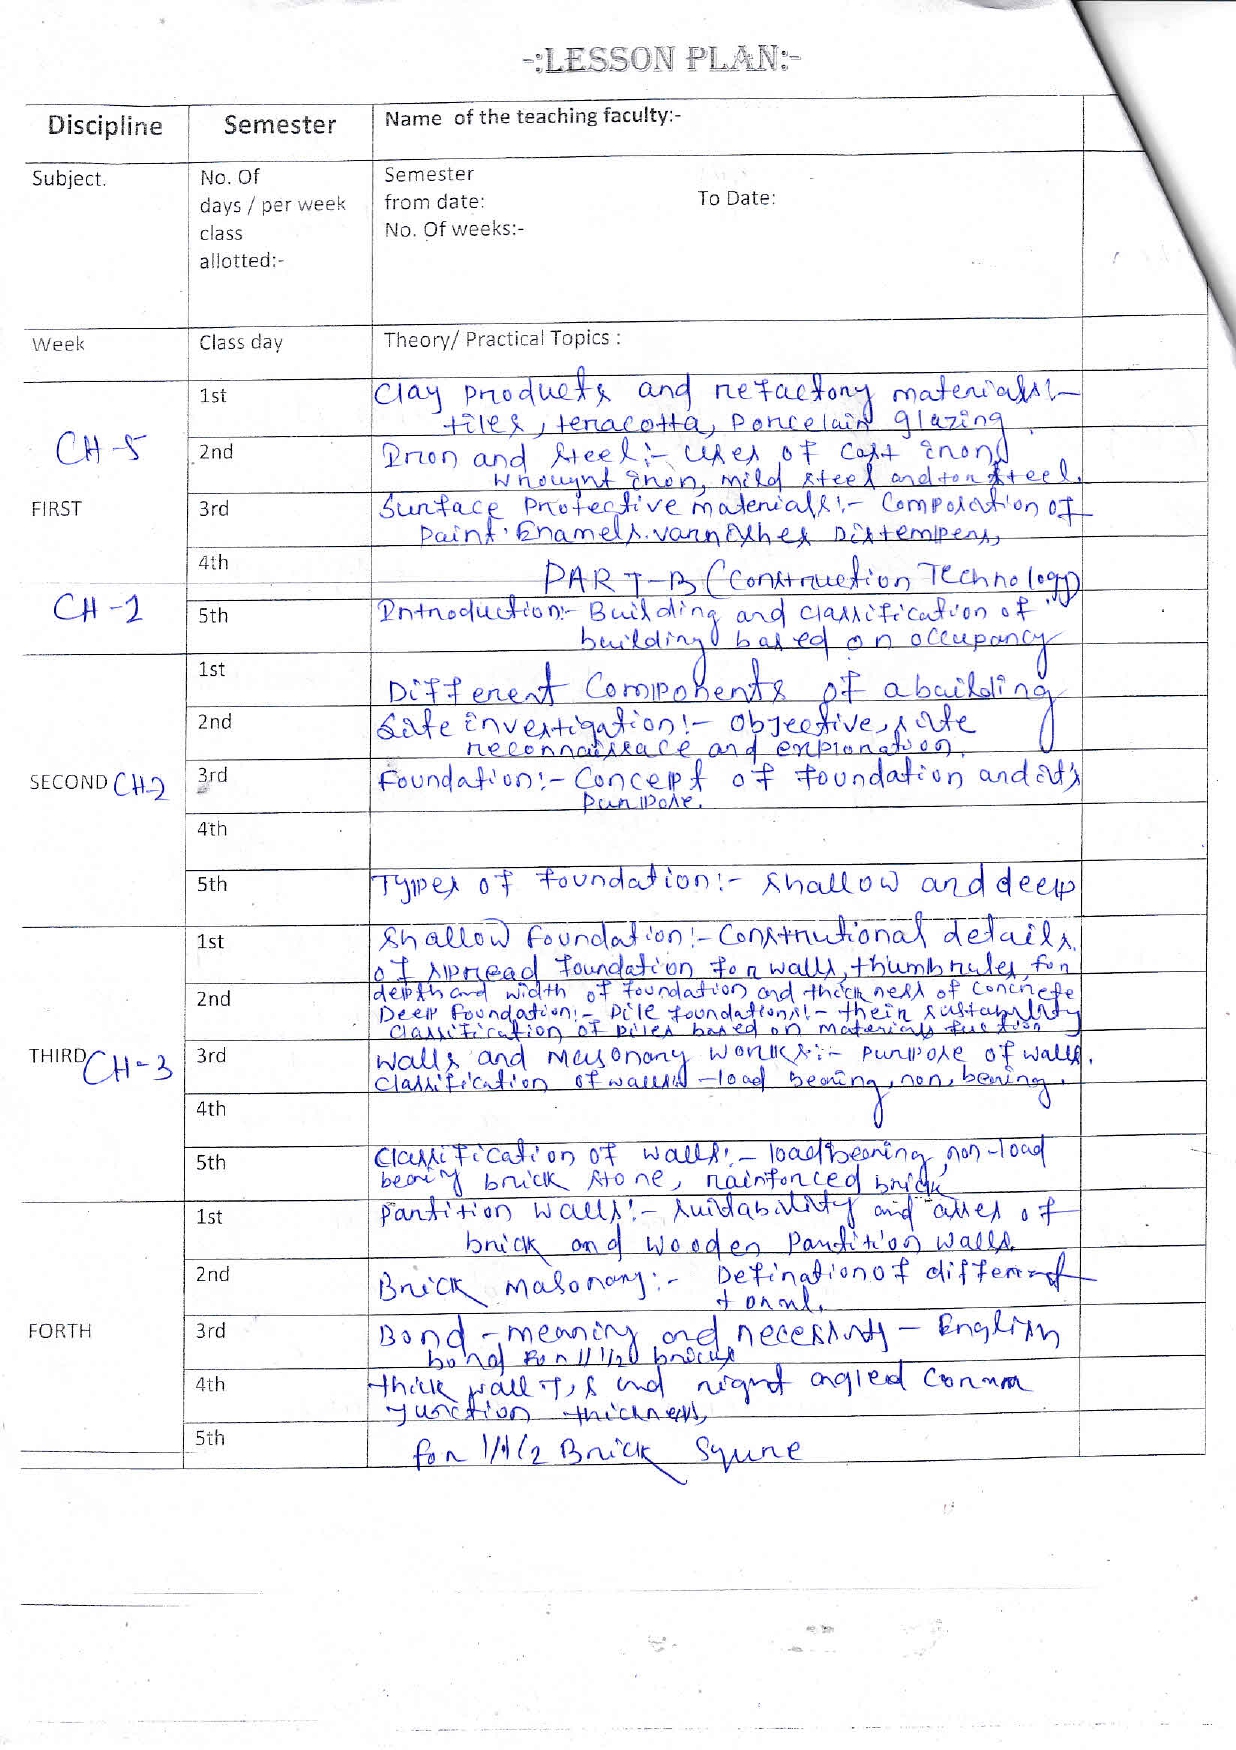 -:LESSON PLAN:-
Discipline Semester Name of the teaching faculty:-
Subject. No. Of days / per week class allotted:- Semester from date: To Date:
No. Of weeks:-
Week Class day Theory/ Practical Topics :
CH-5
FIRST
1st Clay products and refactory materials:-
tiles, teracotta, porcelain glazing.
2nd Iron and steel:- uses of cast iron,
wrought iron, mild steel and tor steel.
3rd Surface Protective materials:- Composation of
paint. Enamels. varnishes Distempers,
4th PART-B (Construction Technology)
CH-1
5th Introduction:- Building and classification of
building based on occupancy
SECOND CH-2
1st Different Components of a building
2nd Site investigation:- Objective, site
reconnaissace and
3rd Foundation:- Concept of foundation and it's
purpose.
4th
5th Types of foundation:- shallow and deep
THIRD CH-3
1st Shallow foundation:- Constructional details
of spread foundation for walls, thumb rules, for
2nd depth and width of foundation and thickness of concrete
Deep foundation:- Pile foundations:- their suitability
classification of piles based on materials
3rd Walls and Masonary works:- purpose of walls.
classification of walls - load bearing, non, bearing.
4th
5th Classification of walls:- load bearing, non-load
bearing brick stone, rainforced brick
FORTH
1st Partition walls:- suitability and uses of
brick and wooden partition walls.
2nd Brick Masonary:- Defination of different
3rd Bond - meaning and necessity - English
bond for 1 1/2 bricks
4th thick wall T, and right angled
junction thickness,
5th for 1/1/2 Brick Squre